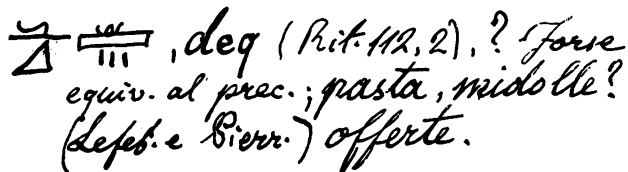 , deq (Rit. 112, 2), ? Forse
equiv. al prec.; pasta, midolle?
(Lefeb. e Pierr.) offerte.